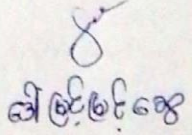 ဒေါ်မြင့်မြင့်ဆွေ